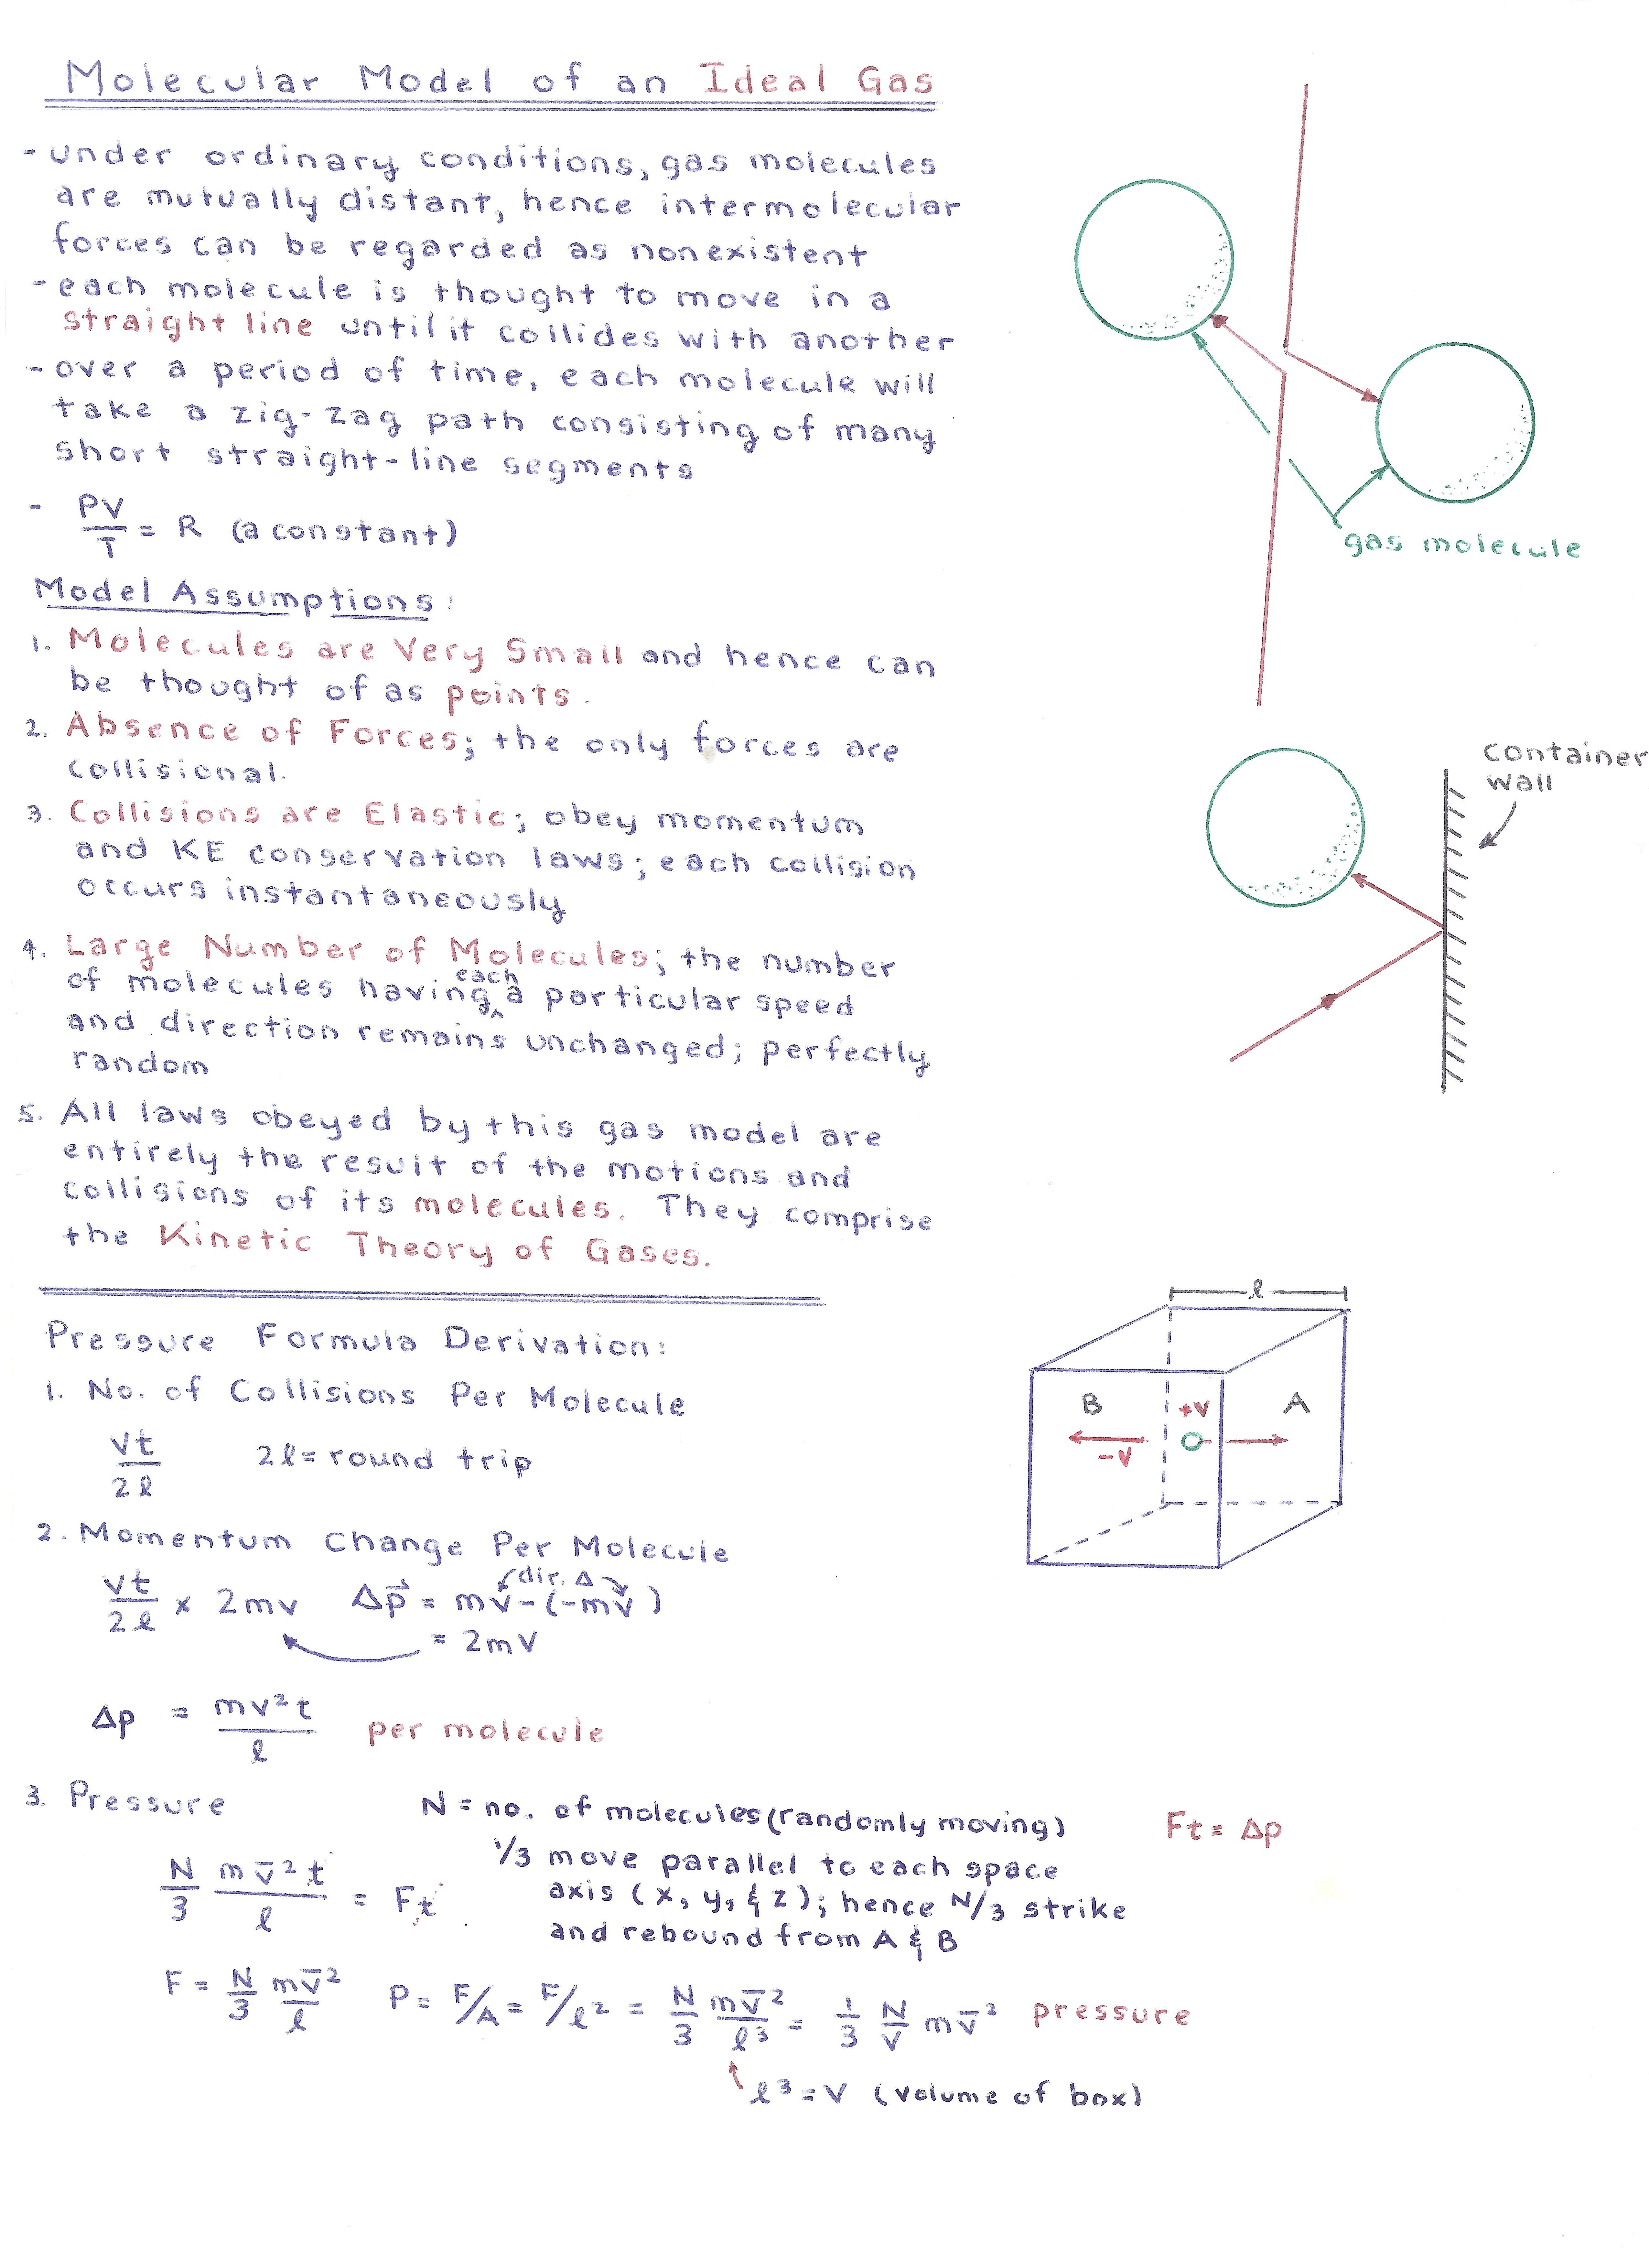 Molecular Model of an Ideal Gas
- under ordinary conditions, gas molecules
are mutually distant, hence intermolecular
forces can be regarded as nonexistent
- each molecule is thought to move in a
straight line until it collides with another
- over a period of time, each molecule will
take a zig-zag path consisting of many
short straight-line segments
- PV/T = R (a constant)
gas molecule
Model Assumptions:
1. Molecules are Very Small and hence can
be thought of as points.
2. Absence of Forces; the only forces are
collisional.
container
wall
3. Collisions are Elastic; obey momentum
and KE conservation laws; each collision
occurs instantaneously
4. Large Number of Molecules; the number
of molecules having each a particular speed
and direction remains unchanged; perfectly
random
5. All laws obeyed by this gas model are
entirely the result of the motions and
collisions of its molecules. They comprise
the Kinetic Theory of Gases.
Pressure Formula Derivation:
1. No. of Collisions Per Molecule
vt/2ℓ 2ℓ = round trip
ℓ
B +v A
-v
2. Momentum Change Per Molecule
dir. Δ
vt/2ℓ × 2mv Δp⃗ = mv⃗ - (-mv⃗)
= 2mv
Δp = mv²t/ℓ per molecule
3. Pressure
N = no. of molecules (randomly moving) Ft = Δp
1/3 move parallel to each space
axis (x, y, & z); hence N/3 strike
and rebound from A & B
N/3 mv̄²t/ℓ = Ft
F = N/3 mv̄²/ℓ P = F/A = F/ℓ² = N/3 mv̄²/ℓ³ = 1/3 N/V mv̄² pressure
ℓ³ = V (volume of box)